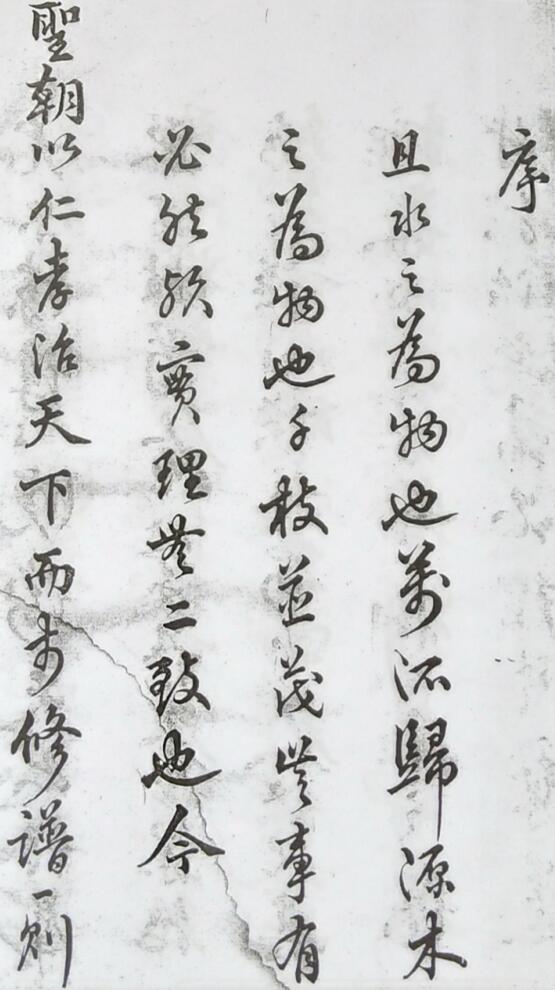 序
且水之為物也萬派歸源木
之為物也千枝並茂豈事有
必然欤實理無二致也今
聖朝以仁孝治天下而於修譜一則